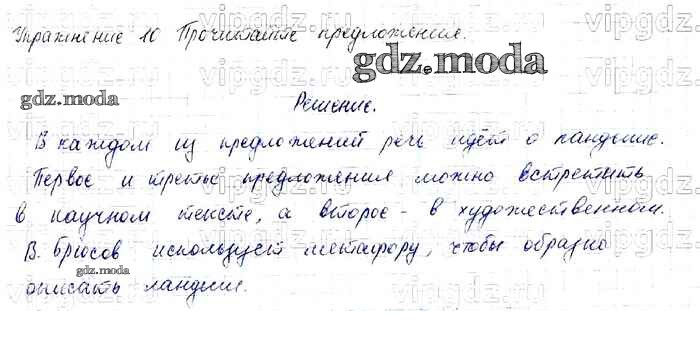 Упражнение 10 Прочитайте предложения.
gdz.moda
gdz.moda
Решение.
В каждом из предложений речь идёт о ландыше.
Первое и третье предложения можно встретить
в научном тексте, а второе - в художественном.
В. Брюсов использует метафору, чтобы образно
gdz.moda
описать ландыш.